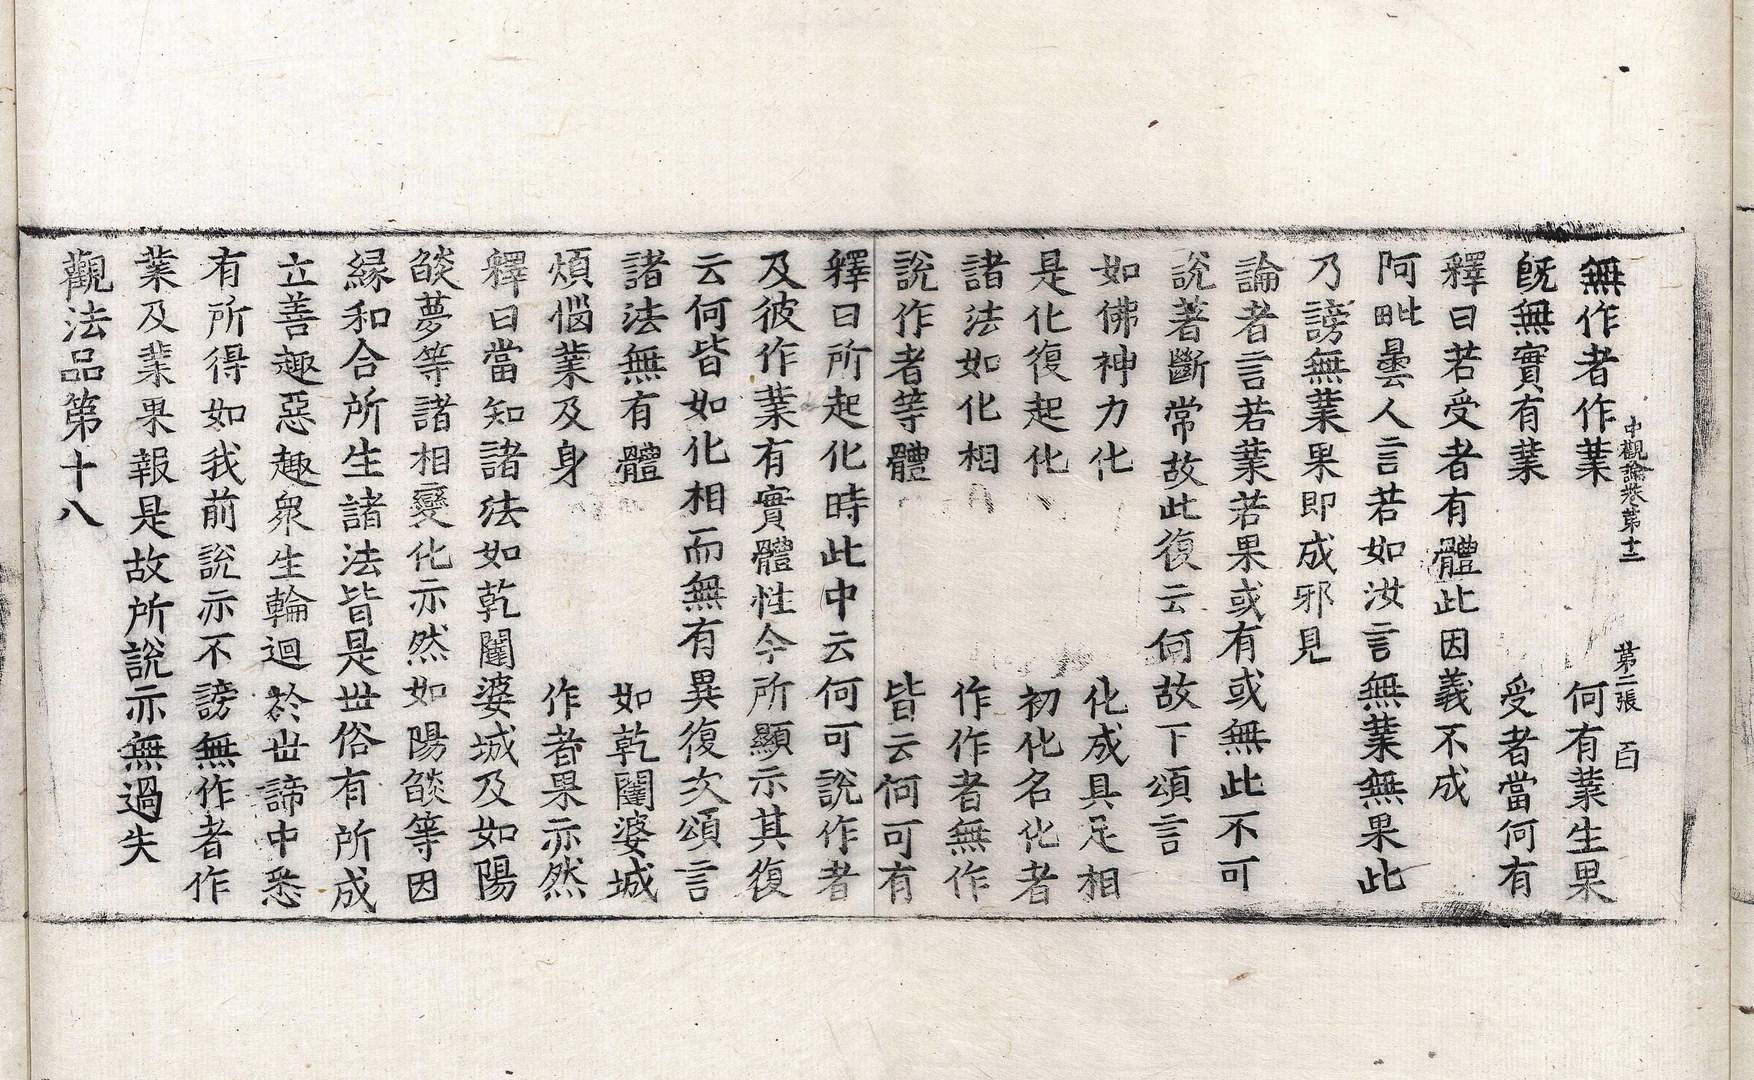 中觀論卷第十二　第二張　百
無作者作業　何有業生果
旣無實有業　受者當何有
釋曰若受者有體此因義不成
阿毗曇人言若如汝言無業無果此
乃謗無業果即成邪見
論者言若業若果或有或無此不可
說著斷常故此復云何故下頌言
如佛神力化　化成具足相
是化復起化　初化名化者
諸法如化相　作作者無作
說作者等體　皆云何可有
釋曰所起化時此中云何可說作者
及彼作業有實體性今所顯示其復
云何皆如化相而無有異復次頌言
諸法無有體　如乾闥婆城
煩惱業及身　作者果亦然
釋曰當知諸法如乾闥婆城及如陽
燄夢等諸相變化亦然如陽燄等因
緣和合所生諸法皆是世俗有所成
立善趣惡趣衆生輪迴於世諦中悉
有所得如我前說亦不謗無作者作
業及業果報是故所說亦無過失
觀法品第十八